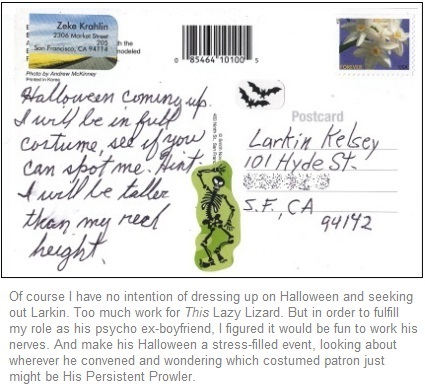 Zeke Krahlin
2306 Market Street
705
San Francisco, CA 94114
h the
modeled
Photo by Andrew McKinney
Printed in Korea
0 85464 10100 5
FOREVER
Postcard
Halloween coming up.
I will be in full
costume, see if you
can spot me. Hint:
I will be taller
than my real
height.
Larkin Kelsey
101 Hyde St.
S.F., CA
94142
Of course I have no intention of dressing up on Halloween and seeking
out Larkin. Too much work for This Lazy Lizard. But in order to fulfill
my role as his psycho ex-boyfriend, I figured it would be fun to work his
nerves. And make his Halloween a stress-filled event, looking about
wherever he convened and wondering which costumed patron just
might be His Persistent Prowler.